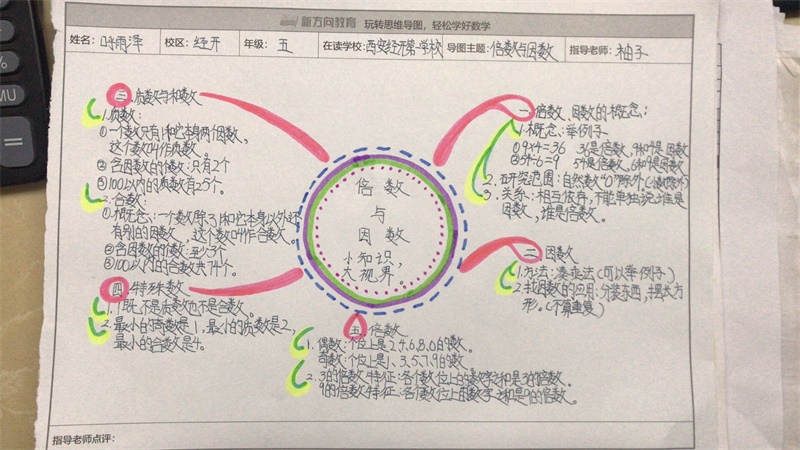 新方向教育 玩转思维导图，轻松学好数学
姓名： 雨泽 校区：经开 年级：五 在读学校：西安经开第一学校 导图主题：倍数与因数 指导老师：柚子
倍数
与
因数
小知识，
大视界。
一、倍数、因数的概念：
1.概念：举例子
①9×4=36 36是倍数，9和4是因数
②54÷6=9 54是倍数，6和9是因数
2.研究范围：自然数“0”除外（小数除外）
3.关系：相互依存，不能单独说谁是
因数，谁是倍数。
二、因数
1.方法：凑乘法（可以举例子）
2.找因数的应用：分装东西，摆长方
形。（不算重复）
三、质数与和数
1.质数：
①一个数只有1和它本身两个因数，
这个数叫作质数。
②含因数的个数：只有2个
③100以内的质数有25个。
2.合数：
①概念：一个数除了1和它本身以外还
有别的因数，这个数叫作合数。
②含因数的个数：至少3个
③100以内的合数共74个。
四、特殊数
1.1既不是质数也不是合数。
2.最小的奇数是1，最小的质数是2，
最小的合数是4。
五、倍数
1.偶数：个位上是2.4.6.8.0的数。
奇数：个位上是1、3.5.7.9的数
2.3的倍数特征：各个数位上的数字之和是3的倍数。
9的倍数特征：各个数位上的数字之和是9的倍数。
指导老师点评：